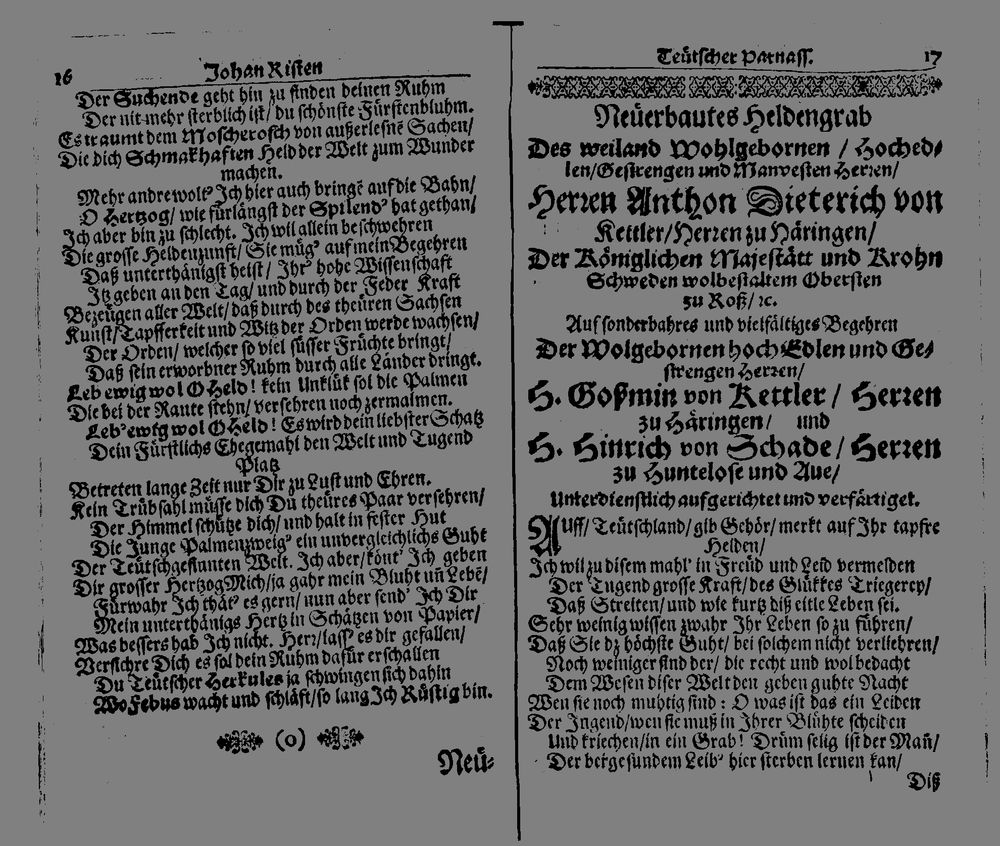 16 Johan Risten
Der Suchende geht hin zu finden deinen Ruhm
Der nit mehr sterblich ist/ du schönste Fürstenbluhm.
Es traumt dem Moscherosch von außerlesnẽ Sachen/
Die dich Schmakhaften Held der Welt zum Wunder
machen.
Mehr andre wolt' Ich hier auch bringẽ auf die Bahn/
O Hertzog/ wie fürlängst der Spilend' hat gethan/
Ich aber bin zu schlecht. Ich wil allein beschwehren
Die grosse Heldenzunft/ Sie müg' auf mein Begehren
Daß unterthänigst heist/ Ihr' hohe Wissenschaft
Itz geben an den Tag/ und durch der Feder Kraft
Bezeugen aller Welt/ daß durch des theüren Sachsen
Kunst/ Tapfferkeit und Witz der Orden werde wachsen/
Der Orden/ welcher so viel süsser Früchte bringt/
Daß sein erworbner Ruhm durch alle Länder dringt.
Leb ewig wol O Held! kein Unklük sol die Palmen
Die bei der Raute stehn/ versehren noch zermalmen.
Leb' ewig wol O Held! Es wird dein liebster Schatz
Dein Fürstlichs Ehegemahl den Welt und Tugend
Platz
Betreten lange Zeit nur Dir zu Lust und Ehren.
Kein Trübsahl müsse dich Du theüres Paar versehren/
Der Himmel schütze dich/ und halt in fester Hut
Die Junge Palmenzweig' ein unvergleichlichs Guht
Der Teütschgesinnten Welt. Ich aber/ könt' Ich geben
Dir grosser Hertzog Mich/ ja gahr mein Bluht uñ Lebẽ/
Fürwahr Ich thät' es gern/ nun aber send' Ich Dir
Mein unterthänigs Hertz in Schätzen von Papier/
Was bessers hab Ich nicht. Herr/ lass' es dir gefallen/
Versichre Dich es sol dein Ruhm dafür erschallen
Du Teütscher Herkules ja schwingen sich dahin
Wo Febus wacht und schläft/ so lang Ich Rüstig bin.
(o)
Neü-
Teütscher Parnass. 17
Neüerbautes Heldengrab
Des weiland Wohlgebornen / Hoched-
len/ Gestrengen und Manvesten Herren/
Herren Anthon Dieterich von
Kettler/ Herren zu Häringen/
Der Königlichen Majestätt und Krohn
Schweden wolbestaltem Obersten
zu Roß/ ꝛc.
Auf sonderbahres und vielfältiges Begehren
Der Wolgebornen hoch Edlen und Ge-
strengen Herren/
H. Goßmin von Kettler/ Herren
zu Häringen/ und
H. Hinrich von Schade/ Herren
zu Huntelose und Aue/
Unterdienstlich aufgerichtet und verfärtiget.
AUff/ Teütschland/ gib Gehör/ merkt auf Ihr tapfre
Helden/
Ich wil zu disem mahl' in Freüd und Leid vermelden
Der Tugend grosse Kraft/ des Glükkes Triegerey/
Daß Streiten/ und wie kurtz diß eitle Leben sei.
Sehr weinig wissen zwahr Ihr Leben so zu führen/
Daß Sie dz höchste Guht/ bei solchem nicht verliehren/
Noch weiniger sind der/ die recht und wol bedacht
Dem Wesen diser Welt den geben guhte Nacht
Wen sie noch muhtig sind: O was ist das ein Leiden
Der Jugend/ wen sie muß in Ihrer Blühte scheiden
Und kriechen/ in ein Grab! Drüm selig ist der Mañ/
Der bei gesundem Leib' hier sterben lernen kan/
Diß